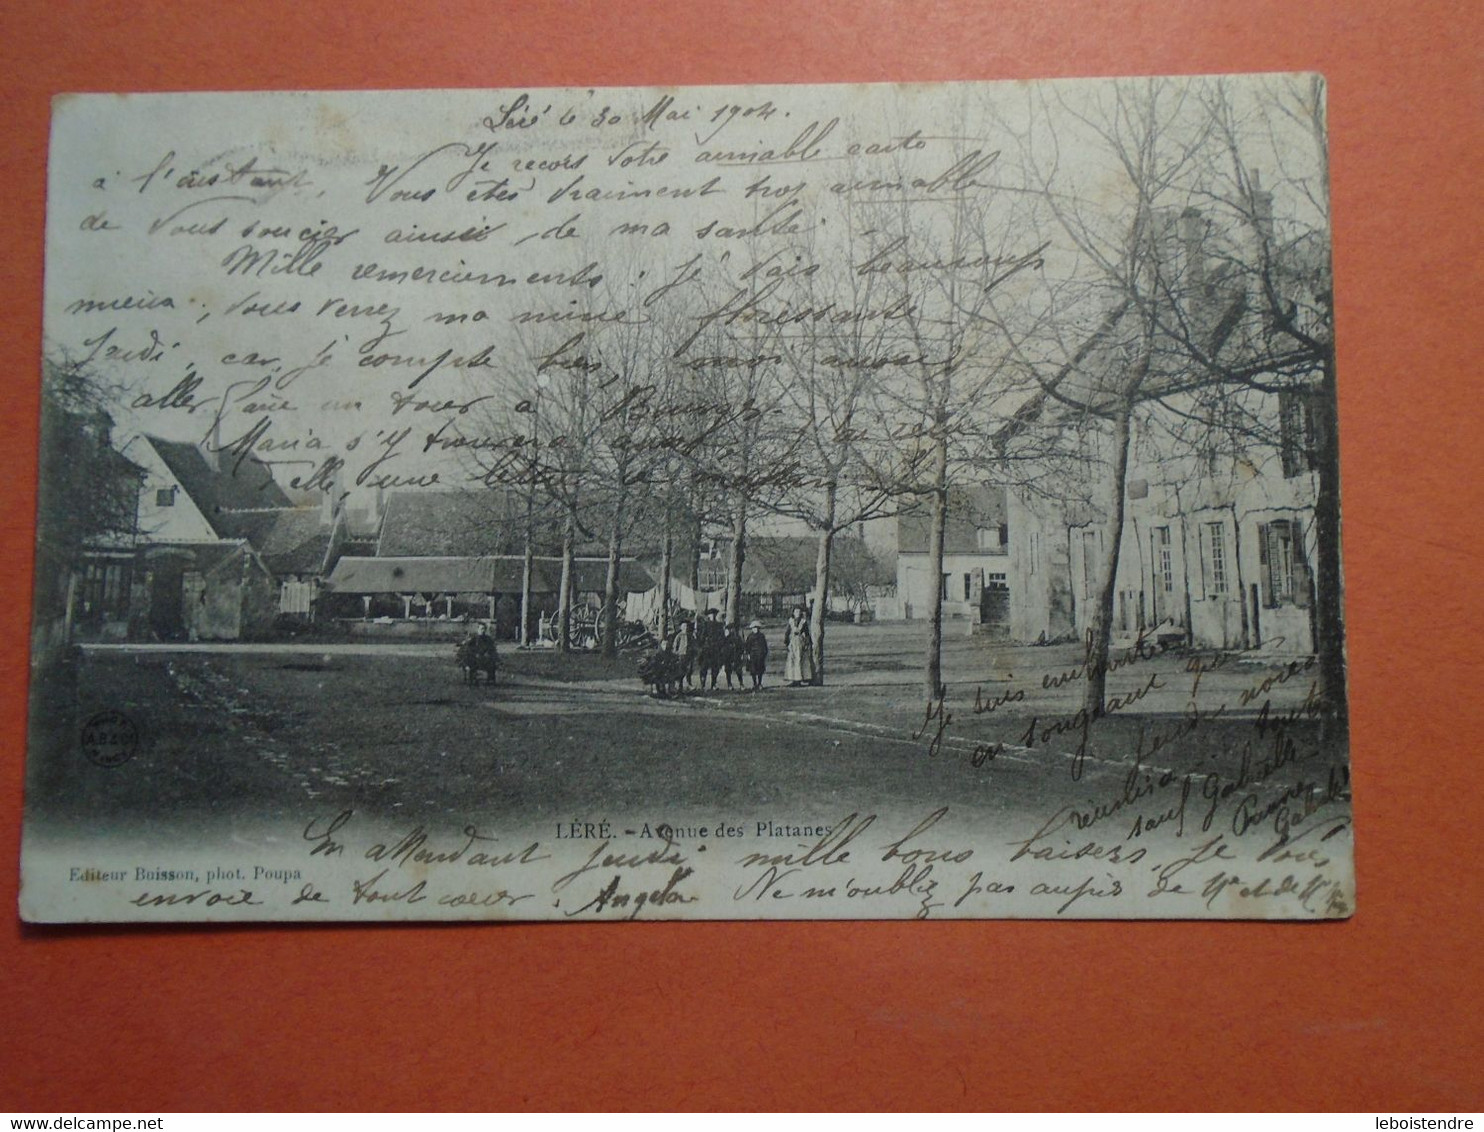 Léré le 30 Mai 1904.
Je reçois votre aimable carte
à l'instant. Vous êtes vraiment trop aimable
de vous soucier ainsi de ma santé.
Mille remerciements. Je vais beaucoup
mieux, vous verrez ma mine florissante
Jeudi, car je compte bien, moi aussi
aller faire un tour à Bourges.
Maria s'y trouvera aussi,
elle, une lettre ce matin
Je suis enchantée
en songeant que
jeudi nous
réunira toutes
sauf Gabrielle
Pauvre
Gabrielle!
LÉRÉ. - Avenue des Platanes
En attendant jeudi, mille bons baisers, je vous
Editeur Buisson, phot. Poupa
envoie de tout coeur. Angela Ne m'oubliez pas auprès de Mr et de Mme
leboistendre